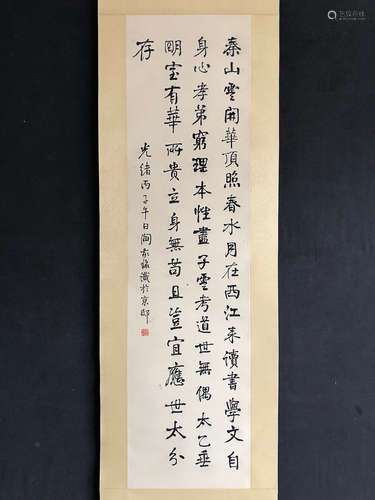 泰山雲開華頂照春水月在西江來讀書學文自
身心孝弟窮理本性盡子雲考道世無偶太乙垂
明室有華所貴立身無苟且豈宜應世太分
存
光緒丙子午日
識於京邸